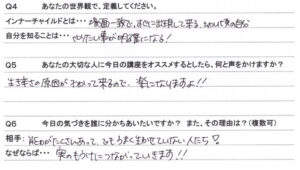 Q4 あなたの世界観で、定義してください。
インナーチャイルドとは・・・ 場面一致で、すぐに出現して来る、幼い代賞の自分
自分を知ることは・・・ やりたい事が明確になる!
Q5 あなたの大切な人に今日の講座をオススメするとしたら、何と声をかけますか?
生き辛さの原因がわかって来るので、楽になりますよ!!
Q6 今日の気づきを誰に分かちあいたいですか? また、その理由は?(複数可)
相手: 能力がたくさんあって、ひとつもうまく生かせていない人たち
なぜならば・・・ 実のもうけにつながっていきます!!